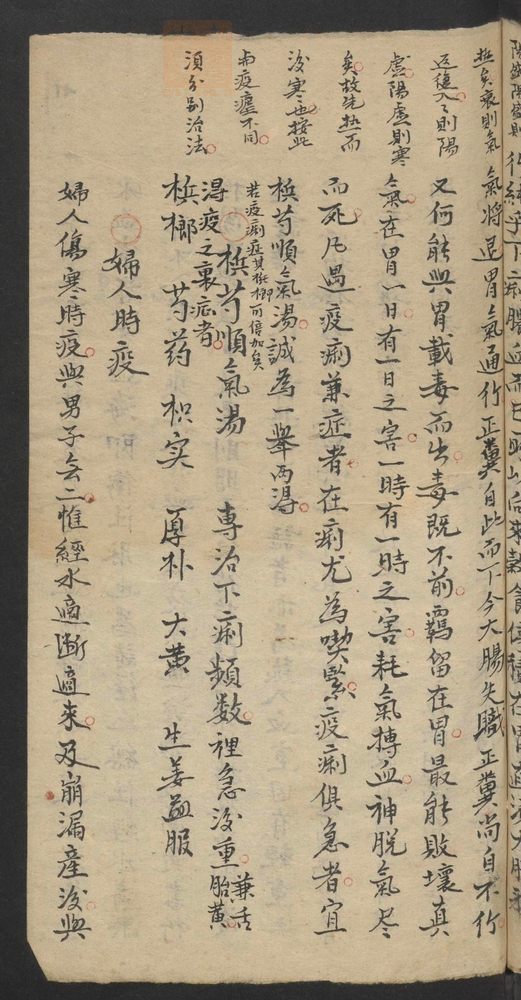 氣將逆胃氣通行正糞自此而下今大腸失職正糞尚自不行
又何能與胃載毒而出毒既不前羈留在胃最能敗壞真
氣在胃一日有一日之害一時有一時之害耗氣搏血神脫氣尽
而死凡遇疫痢兼症者在痢尤為喫緊疫痢俱急者宜
槟芍順氣湯誠為一舉兩得
若疫痢症其槟榔可倍加矣
槟芍順氣湯 專治下痢頻数裡急後重兼舌胎黄
得疫之裏症者
槟榔 芍药 枳实 厚朴 大黄 生姜 煎服
婦人時疫
婦人傷寒時疫與男子無二惟經水適断適來及崩漏產後與
拒矣衰則氣
返移入之則陽
虚陽虚則寒
矣故先热而
後寒也按此
与疫瘧不同
須分别治法